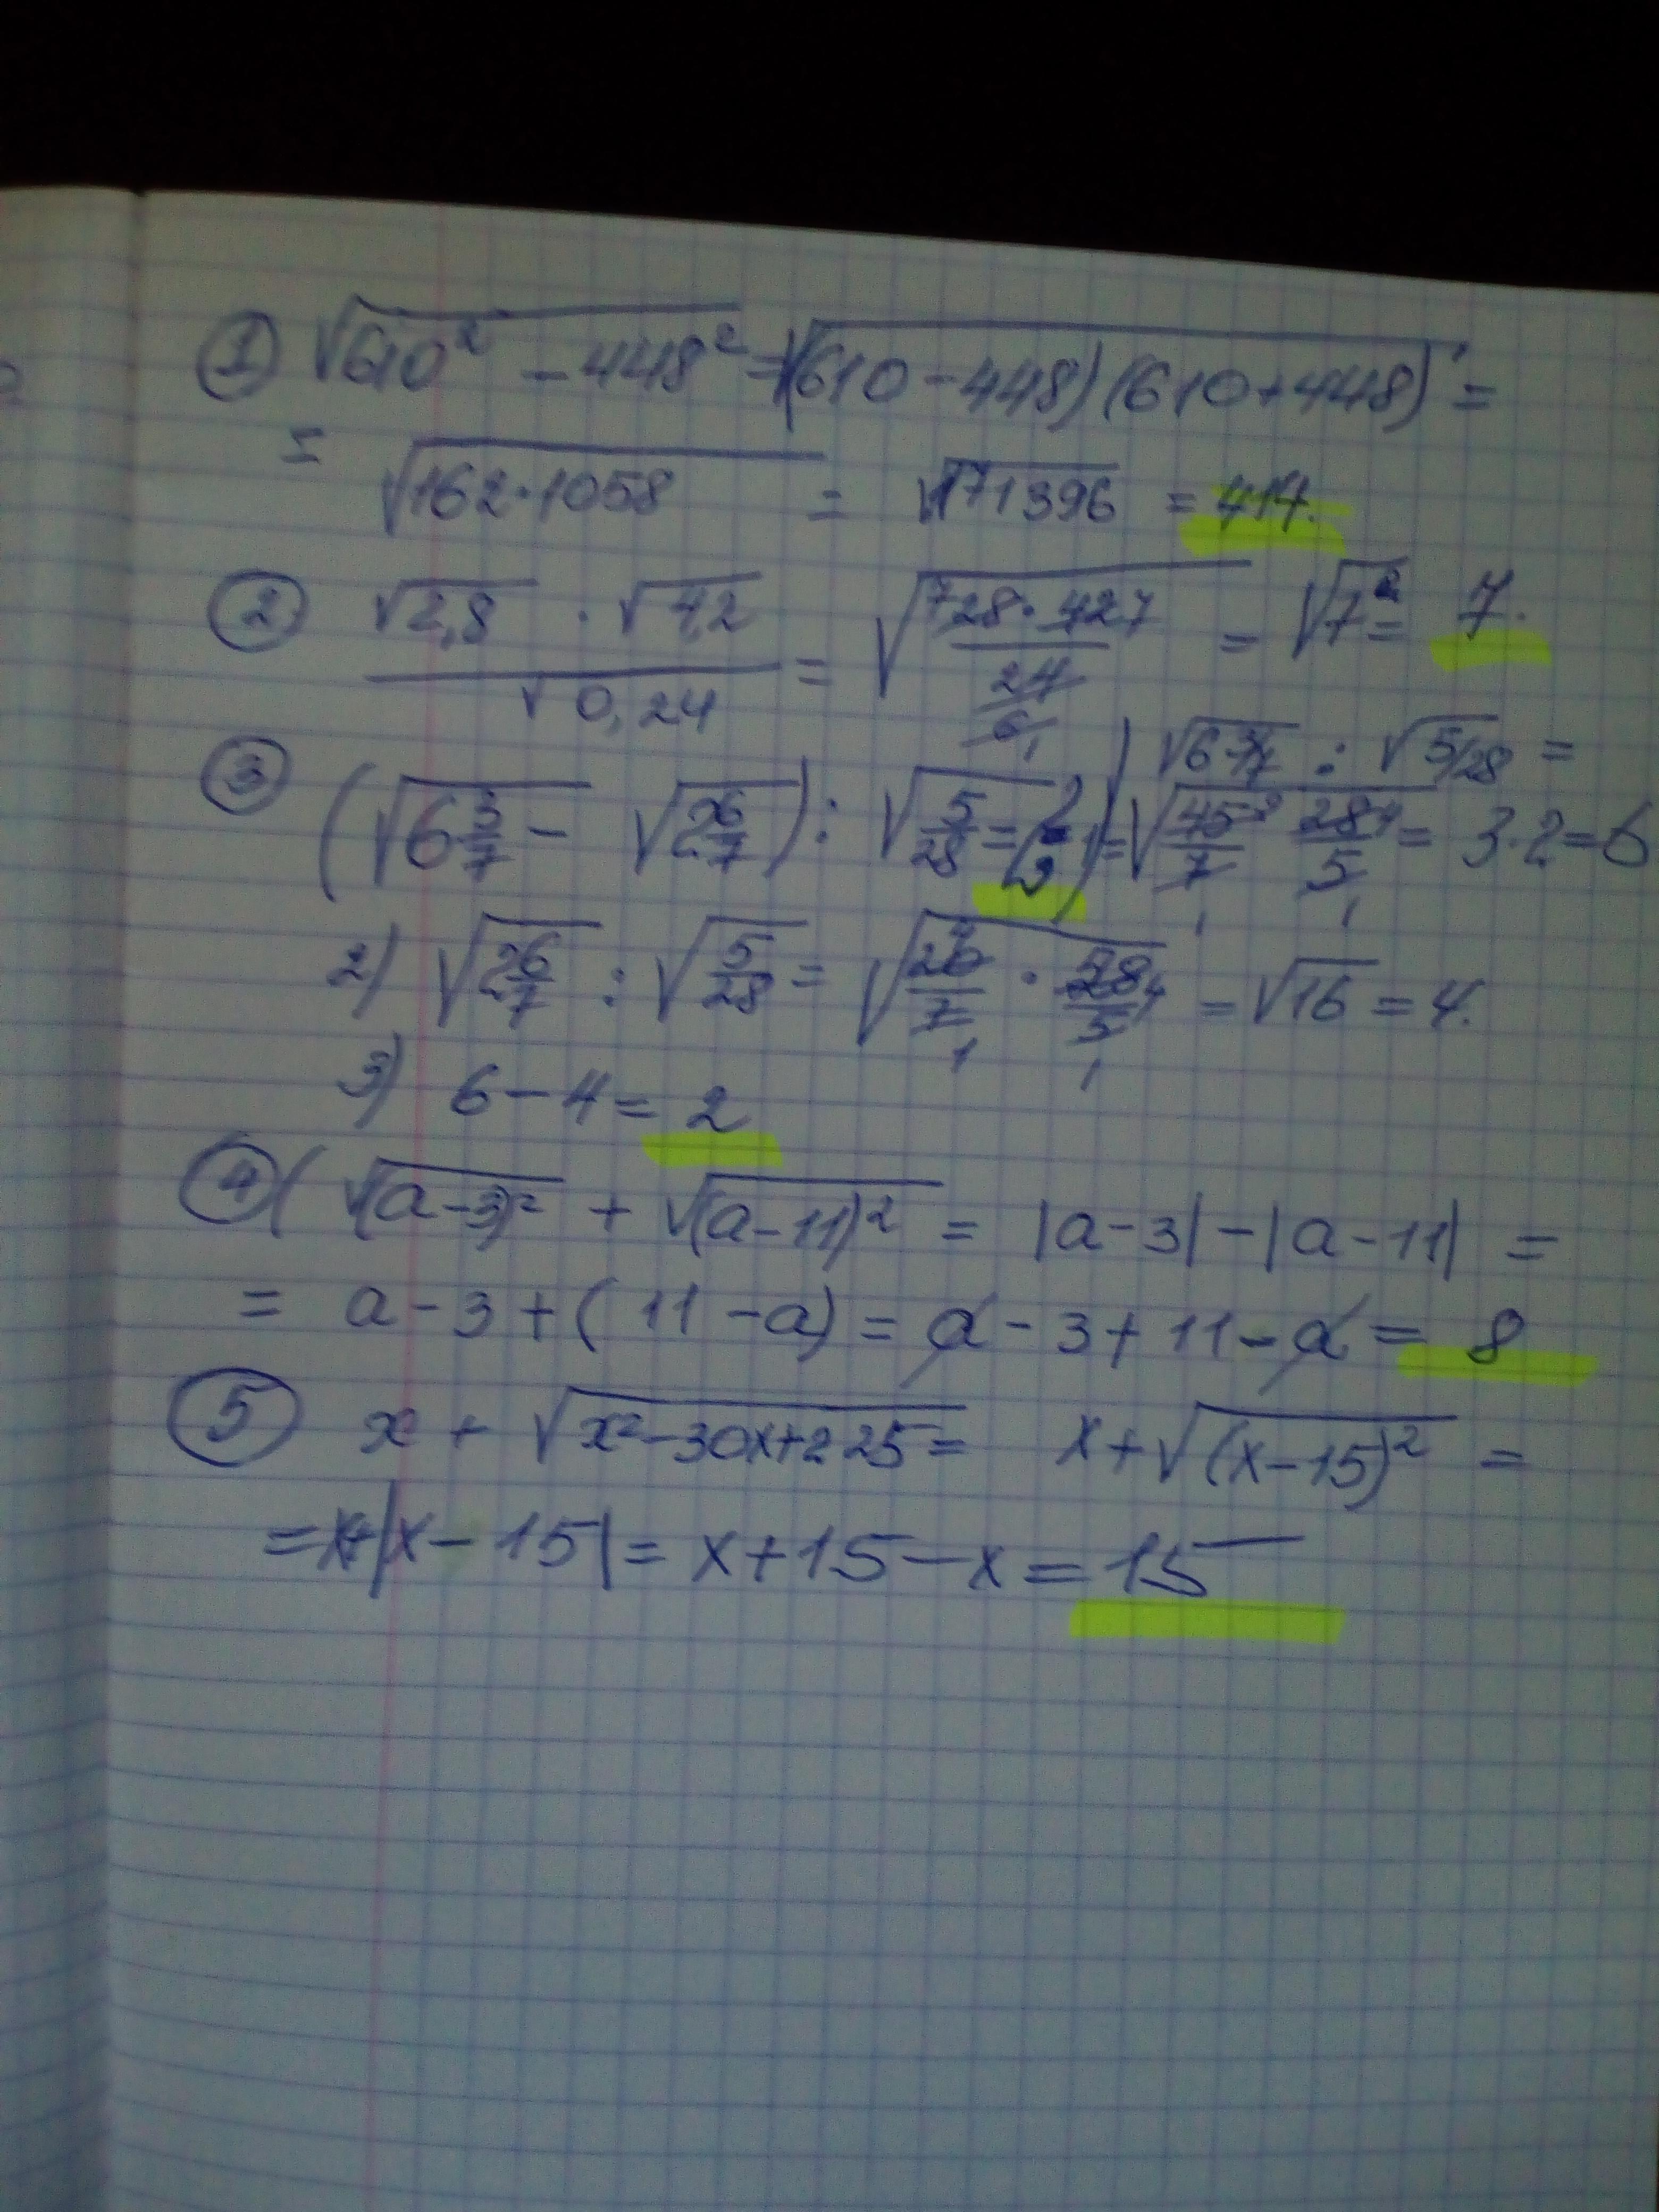 ① √610² - 448² = √(610-448)(610+448) =
= √162·1058 = √171396 = 414.
② √2,8 · √4,2 / √0,24 = √728·427/24 6 1 = √7² = 7.
③ (√6 3/7 - √2 6/7) : √5/28 = 2 1) √6 3/7 : √5/28 =
= √45 9/7 1 28 4/5 1 = 3·2=6
2) √2 6/7 : √5/28 = √20 4/7 1 · 28 4/5 1 = √16 = 4.
3) 6-4 = 2
④ ( √(a-3)² + √(a-11)² = |a-3| - |a-11| =
= a-3+(11-a) = a-3+11-a = 8
⑤ x + √x²-30x+225 = x+√(x-15)² =
= x+|x-15| = x+15-x = 15